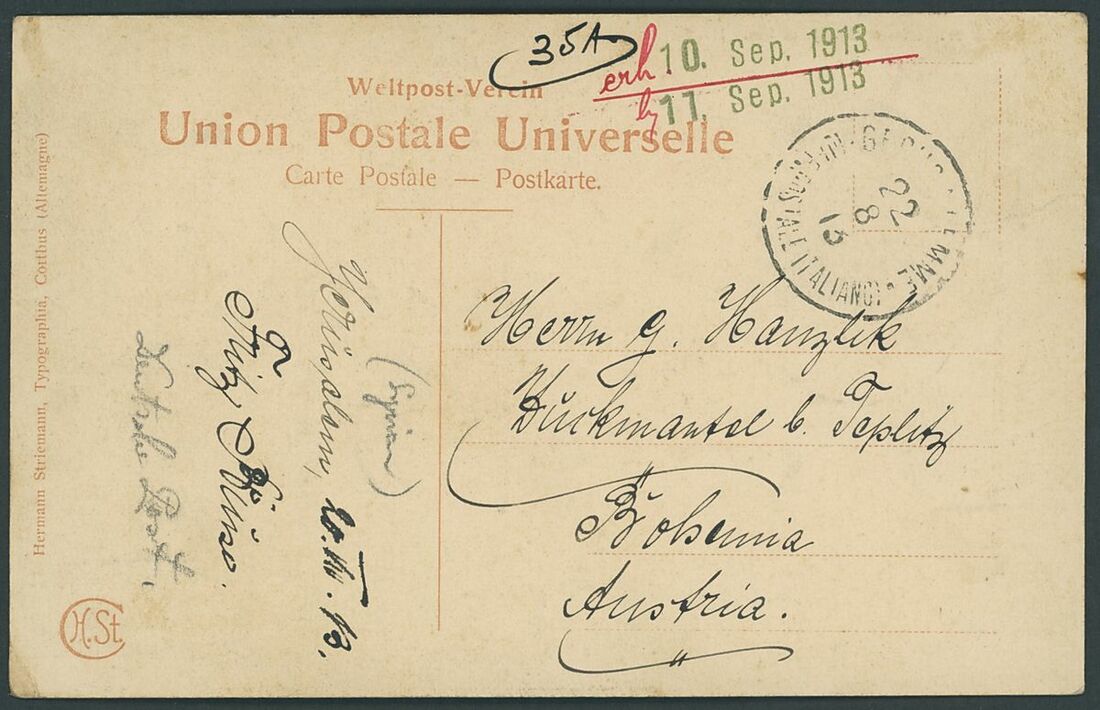 35A
erh. 10. Sep. 1913
11. Sep. 1913
Weltpost-Verein
Union Postale Universelle
Carte Postale — Postkarte.
22
8
13
POSTALE ITALIANO
Herrn G. Hanzlik
b. Teplitz
Bohemia
Austria.
Jerusalem,
(Syrien)
Deutsche Post.
Hermann Striemann, Typographia, Cottbus (Allemagne)
H.St.